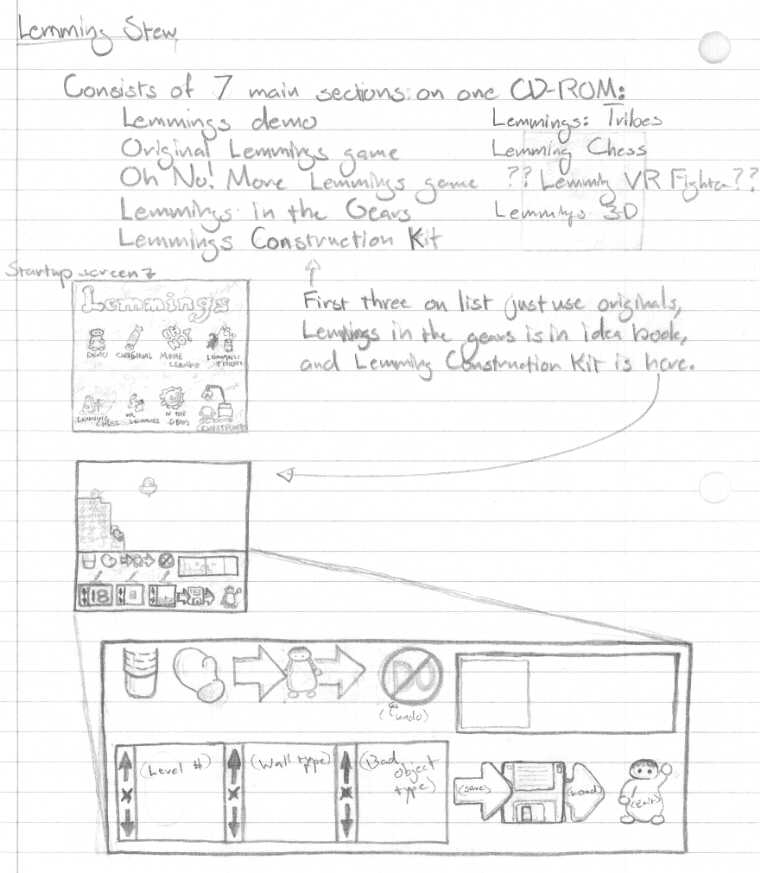 Lemming Stew
Consists of 7 main sections on one CD-ROM:
Lemmings demo
Original Lemmings game
Oh No! More Lemmings game
Lemmings in the Gears
Lemmings Construction Kit
Lemmings: Tribes
Lemming Chess
?? Lemming VR Fighter ??
Lemmings 3D
Startup screen
Lemmings
DEMO
ORIGINAL
MORE
First three on list just use originals,
Lemmings in the gears is in idea book,
and Lemming Construction Kit is here.
18
DO
(undo)
(Level #)
(Wall type)
(Bad
object
type)
(save)
(load)
(exit)